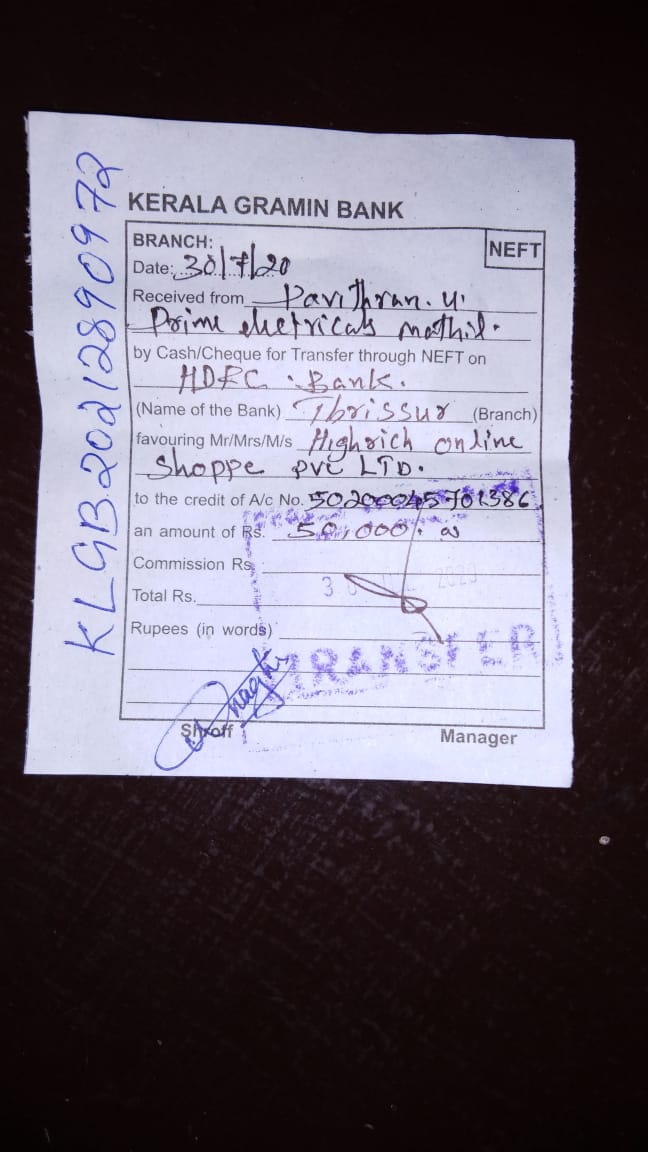 KERALA GRAMIN BANK
BRANCH:
NEFT
Date: 30/7/20
Received from Pavithran. U.
Prime electricals mathil.
by Cash/Cheque for Transfer through NEFT on
HDFC. Bank.
(Name of the Bank) Thrissur (Branch)
favouring Mr/Mrs/M/s Highrich online
Shoppe pvt LTD.
to the credit of A/c No. 50200045701386
an amount of Rs. 50,000.
Commission Rs.
Total Rs.
Rupees (in words)
TRANSFER
Shroff
Manager
KLGB20212890972